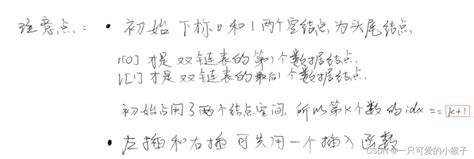 注意点: • 初始 下标0和1两个空结点为头尾结点
r[0] 才是双链表的第1个数据结点.
l[1] 才是双链表的最后1个数据结点.
初始占用了两个结点空间, 所以第K个数的idx == k+1
• 左插和右插 可共用一个插入函数
CSDN @一只可爱的小猴子